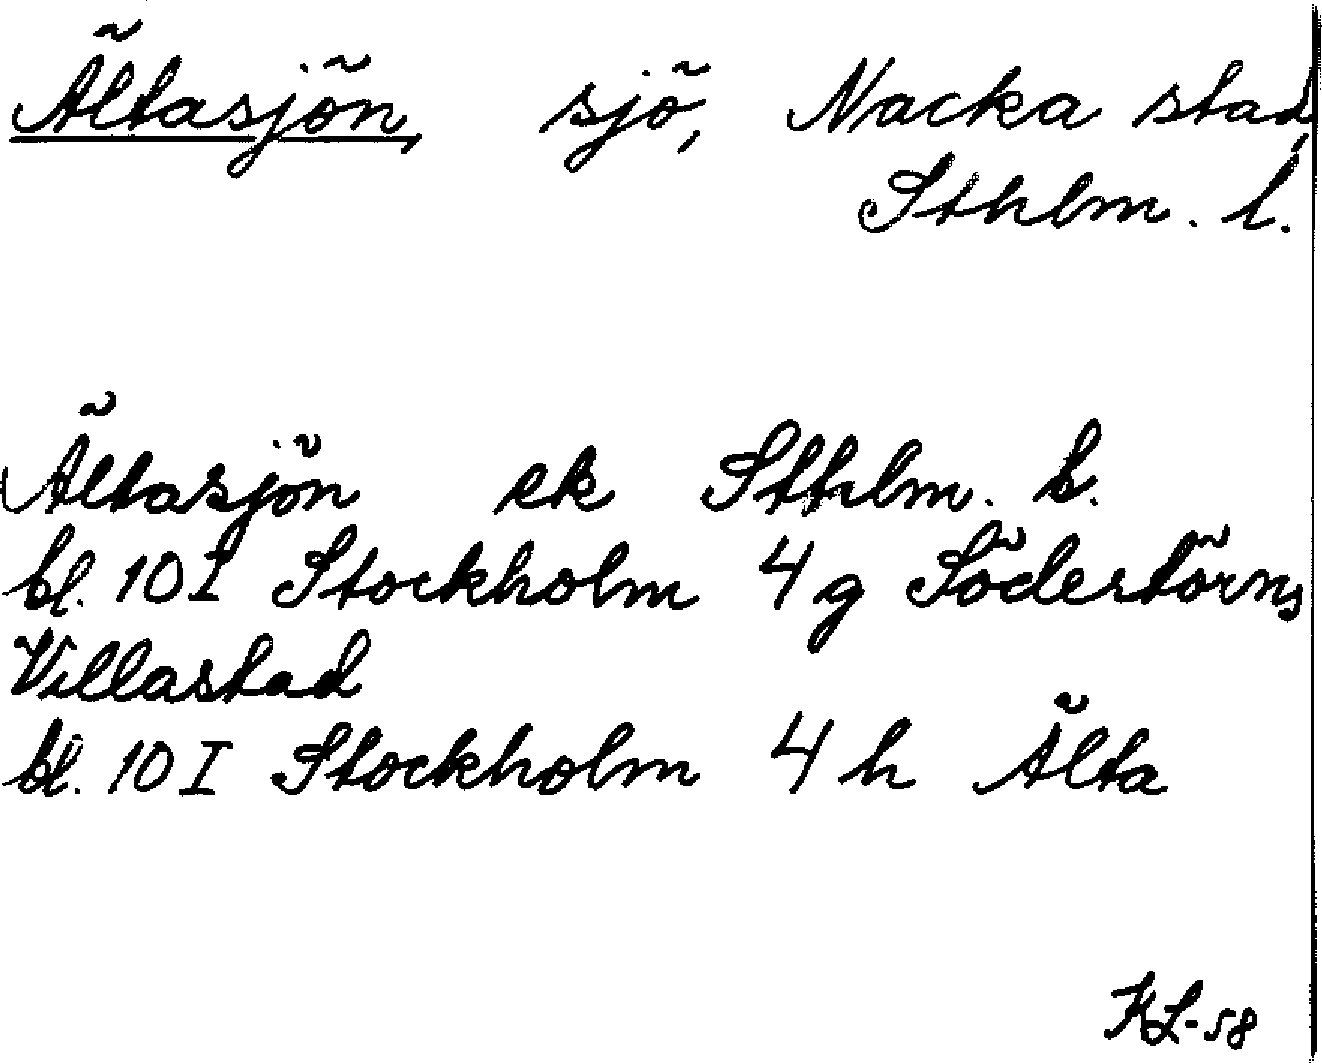 Ältasjön, sjö, Nacka stad,
Sthlm. l.
Ältasjön ek Sthlm. l.
bl. 10 I Stockholm 4 g Södertörns
Villastad
bl. 10 I Stockholm 4 h Älta
KL-58